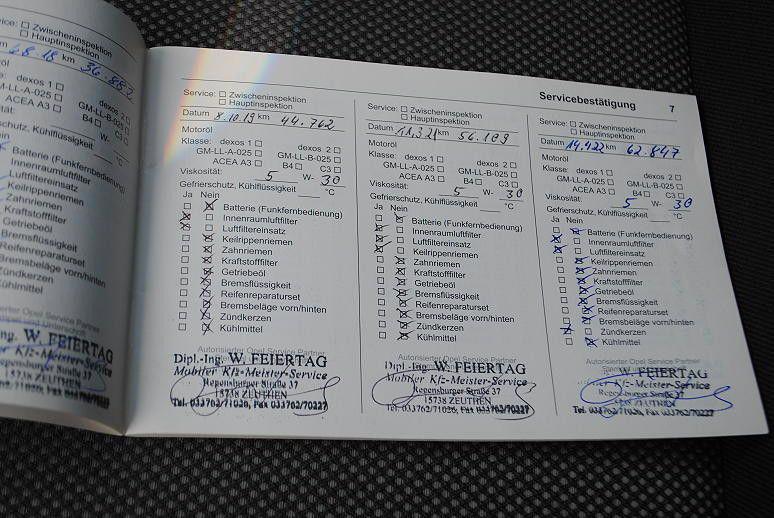 rvice: ☐ Zwischeninspektion
☐ Hauptinspektion
68.18 km 36.857
dexos 2 ☐
dexos 1 ☐
GM-LL-B-025 ☐
GM-LL-A-025 ☐
B4 ☐
ACEA A3 ☐
Gefrierschutz, Kühlflüssigkeit
Batterie (Funkfernbedienung)
Innenraumluftfilter
Luftfiltereinsatz
Keilrippenriemen
Zahnriemen
Kraftstofffilter
Getriebeöl
Bremsflüssigkeit
Reifenreparaturset
Bremsbeläge vorn/hinten
Zündkerzen
Kühlmittel
Autorisierter Opel Service Partner
Ing. W. FEIERTAG
Kfz-Meister-Service
Servicebestätigung 7
Service: ☐ Zwischeninspektion
☐ Hauptinspektion
Datum 8.10.19 km 44.762
Motoröl
Klasse: dexos 1 ☐ dexos 2 ☐
GM-LL-A-025 ☐ GM-LL-B-025 ☐
ACEA A3 ☐ B4 ☐ C3 ☐
Viskosität: 5 W- 30
Gefrierschutz, Kühlflüssigkeit °C
Ja Nein
☐ ☒ Batterie (Funkfernbedienung)
☒ ☐ Innenraumluftfilter
☒ ☐ Luftfiltereinsatz
☐ ☒ Keilrippenriemen
☐ ☒ Zahnriemen
☐ ☒ Kraftstofffilter
☐ ☒ Getriebeöl
☐ ☒ Bremsflüssigkeit
☐ ☒ Reifenreparaturset
☐ ☒ Bremsbeläge vorn/hinten
☐ ☒ Zündkerzen
☐ ☒ Kühlmittel
Autorisierter Opel Service Partner
Dipl.-Ing. W. FEIERTAG
Mobiler Kfz-Meister-Service
Regensburger Straße 37
15738 ZEUTHEN
Tel. 033762/71026, Fax 033762/70227
Service: ☐ Zwischeninspektion
☐ Hauptinspektion
Datum 11.3.21 km 56.189
Motoröl
Klasse: dexos 1 ☐ dexos 2 ☐
GM-LL-A-025 ☐ GM-LL-B-025 ☐
ACEA A3 ☐ B4 ☐ C3 ☐
Viskosität: 5 W- 30
Gefrierschutz, Kühlflüssigkeit °C
Ja Nein
☐ ☒ Batterie (Funkfernbedienung)
☒ ☐ Innenraumluftfilter
☐ ☒ Luftfiltereinsatz
☐ ☒ Keilrippenriemen
☐ ☒ Zahnriemen
☐ ☒ Kraftstofffilter
☐ ☒ Getriebeöl
☐ ☒ Bremsflüssigkeit
☐ ☒ Reifenreparaturset
☐ ☒ Bremsbeläge vorn/hinten
☐ ☒ Zündkerzen
☐ ☒ Kühlmittel
Autorisierter Opel Service Partner
Dipl.-Ing. W. FEIERTAG
Mobiler Kfz-Meister-Service
Regensburger Straße 37
15738 ZEUTHEN
Tel. 033762/71026, Fax 033762/70227
Service: ☐ Zwischeninspektion
☐ Hauptinspektion
Datum 14.422 km 62.847
Motoröl
Klasse: dexos 1 ☐ dexos 2 ☐
GM-LL-A-025 ☐ GM-LL-B-025 ☐
ACEA A3 ☐ B4 ☐ C3 ☐
Viskosität: 5 W- 30
Gefrierschutz, Kühlflüssigkeit °C
Ja Nein
☐ ☒ Batterie (Funkfernbedienung)
☒ ☐ Innenraumluftfilter
☒ ☐ Luftfiltereinsatz
☐ ☒ Keilrippenriemen
☐ ☒ Zahnriemen
☐ ☒ Kraftstofffilter
☐ ☒ Getriebeöl
☐ ☒ Bremsflüssigkeit
☐ ☒ Reifenreparaturset
☐ ☒ Bremsbeläge vorn/hinten
☒ ☐ Zündkerzen
☐ ☒ Kühlmittel
Autorisierter Opel Service Partner
Dipl.-Ing. W. FEIERTAG
Mobiler Kfz-Meister-Service
Regensburger Straße 37
15738 ZEUTHEN
Tel. 033762/71026, Fax 033762/70227